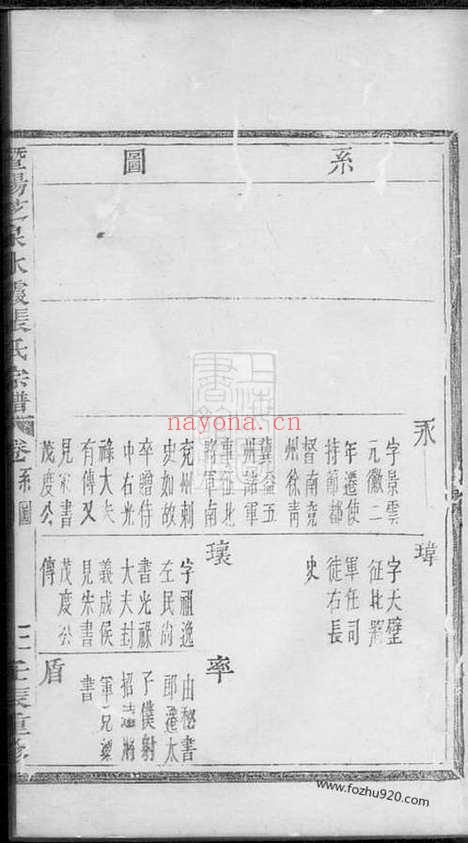 系圖
永
字景雲
元徽二
年遷使
持節都
督南兗
州徐青
冀益五
州諸軍
軍南
兗州刺
史如故
卒贈侍
中右光
祿大夫
有傳又
見宋書
茂度公
瑋
字天璧
征北將
軍任司
徒右長
史
瓌
字祖逸
左民尚
書光祿
大夫封
義成侯
見宋書
茂度公
傳
率
由秘書
郎遷太
子僕射
招遠將
軍見梁
書
盾
暨陽芝泉水霞張氏宗譜 卷 系圖
壬辰重修
nayona.com
www.fozhu920.com